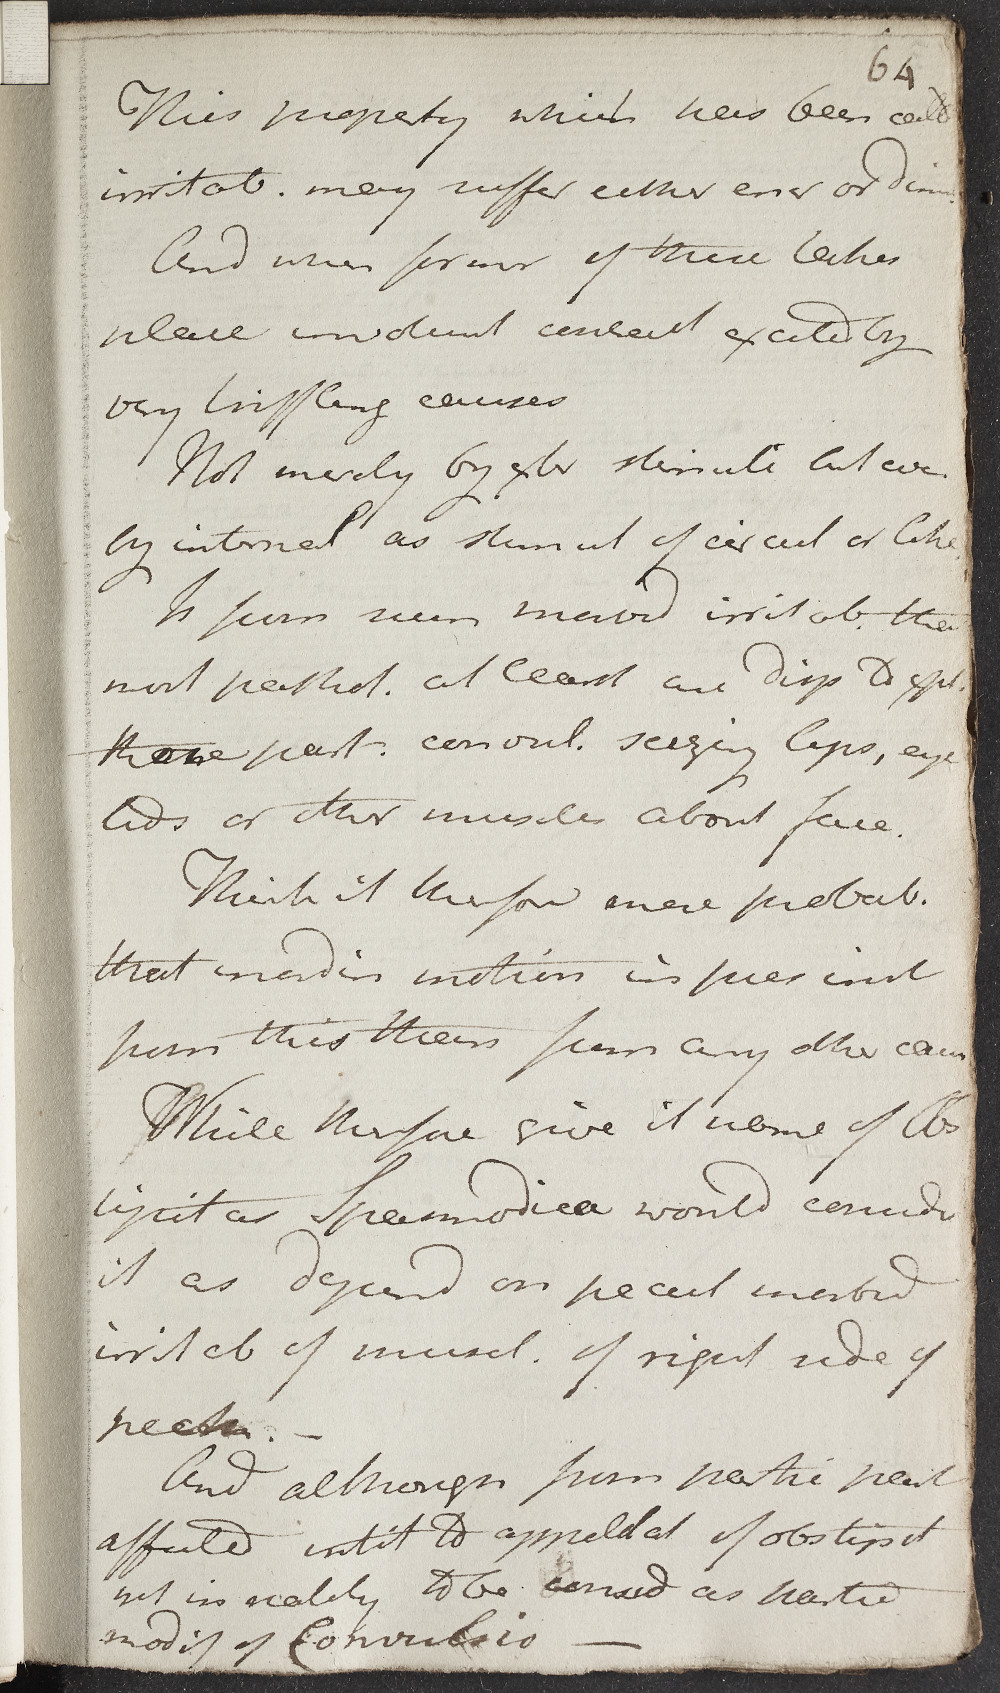 64
This property which has been call'd
irritab. may suffer either encr or dimin.
And when former of these takes
place involunt contract excited by
very triffling causes
Not merely by exter stimuli but even
by internal as stimul of circul or like
From morbid irritab. the
most partial. at least are disp to expl.
those part. convul. seizing lips, eye
lids or other muscles about face.
Think it therefore more probab.
that inordin motion in pres inst
from this than from any other caus
While therefore give it name of Obs
tipitas Spasmodica would consider
it as depend on pecul morbid
irritab of muscl. of right side of
neck. —
And although from partic part
affected intit to appellat of obstipit
yet in reality to be consid as partic
modif of Convulsio —